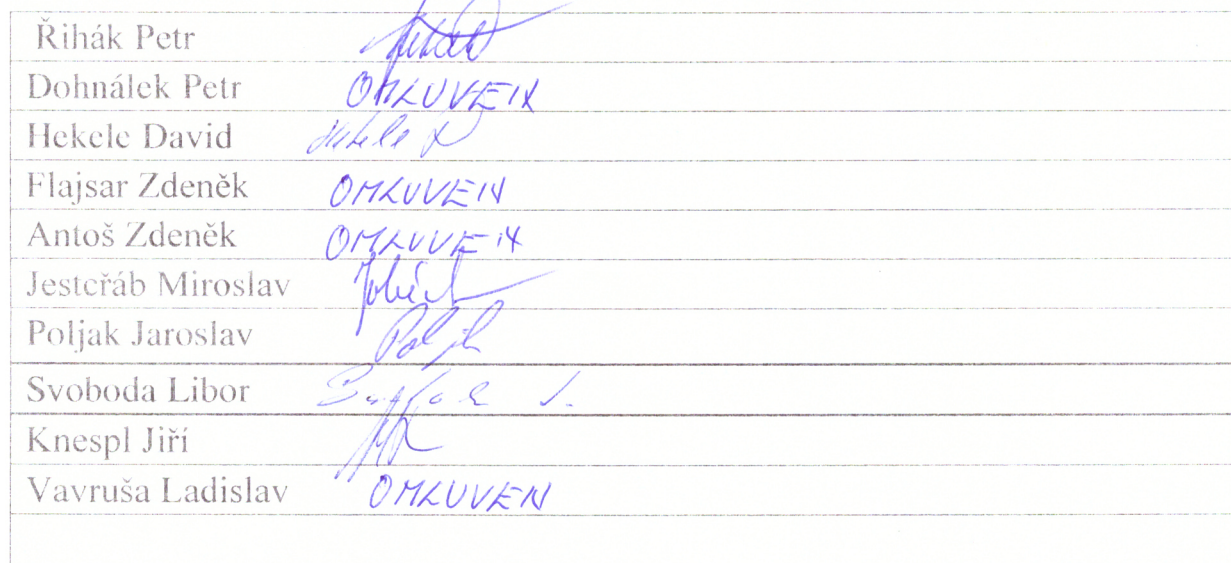 Řihák Petr
Dohnálek Petr OMLUVEN
Hekele David Hekele D
Flajsar Zdeněk OMLUVEN
Antoš Zdeněk OMLUVEN
Jestřáb Miroslav
Poljak Jaroslav Poljak
Svoboda Libor
Knespl Jiří
Vavruša Ladislav OMLUVEN